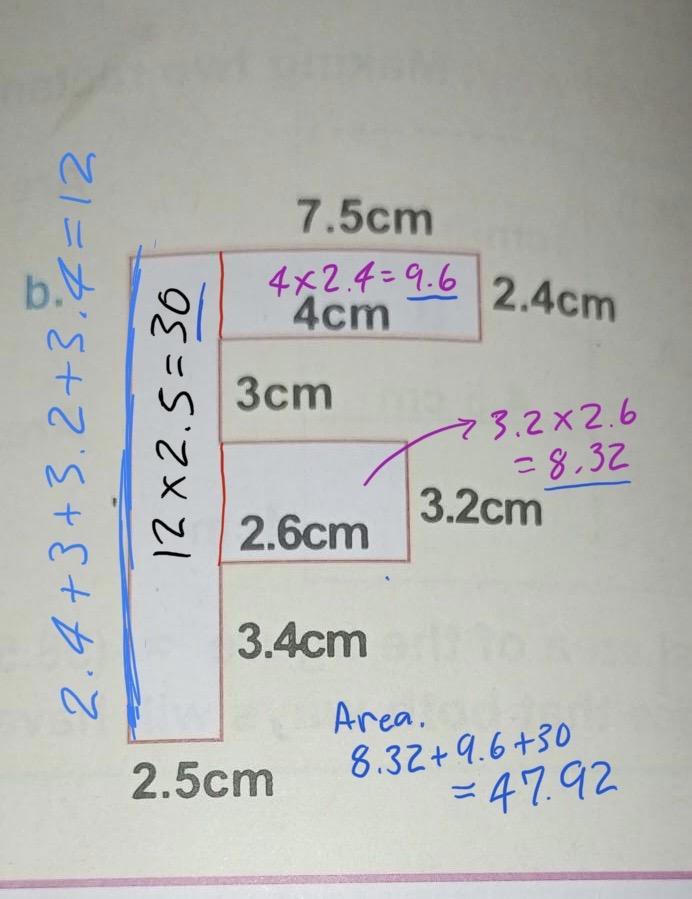 7.5cm
b.
2.4+3+3.2+3.4=12
12×2.5=30
4×2.4=9.6
4cm
2.4cm
3cm
3.2×2.6
=8.32
2.6cm
3.2cm
3.4cm
2.5cm
Area.
8.32+9.6+30
=47.92